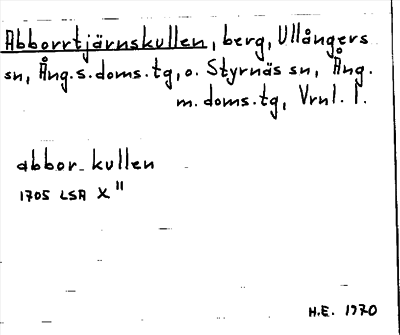 Abborrtjärnskullen, berg, Ullångers
sn, Ång.s.doms.tg, o. Styrnäs sn, Ång.
m. doms.tg, Vrnl. l.
abbor_kullen
1705 LSA X"
H.E. 1970